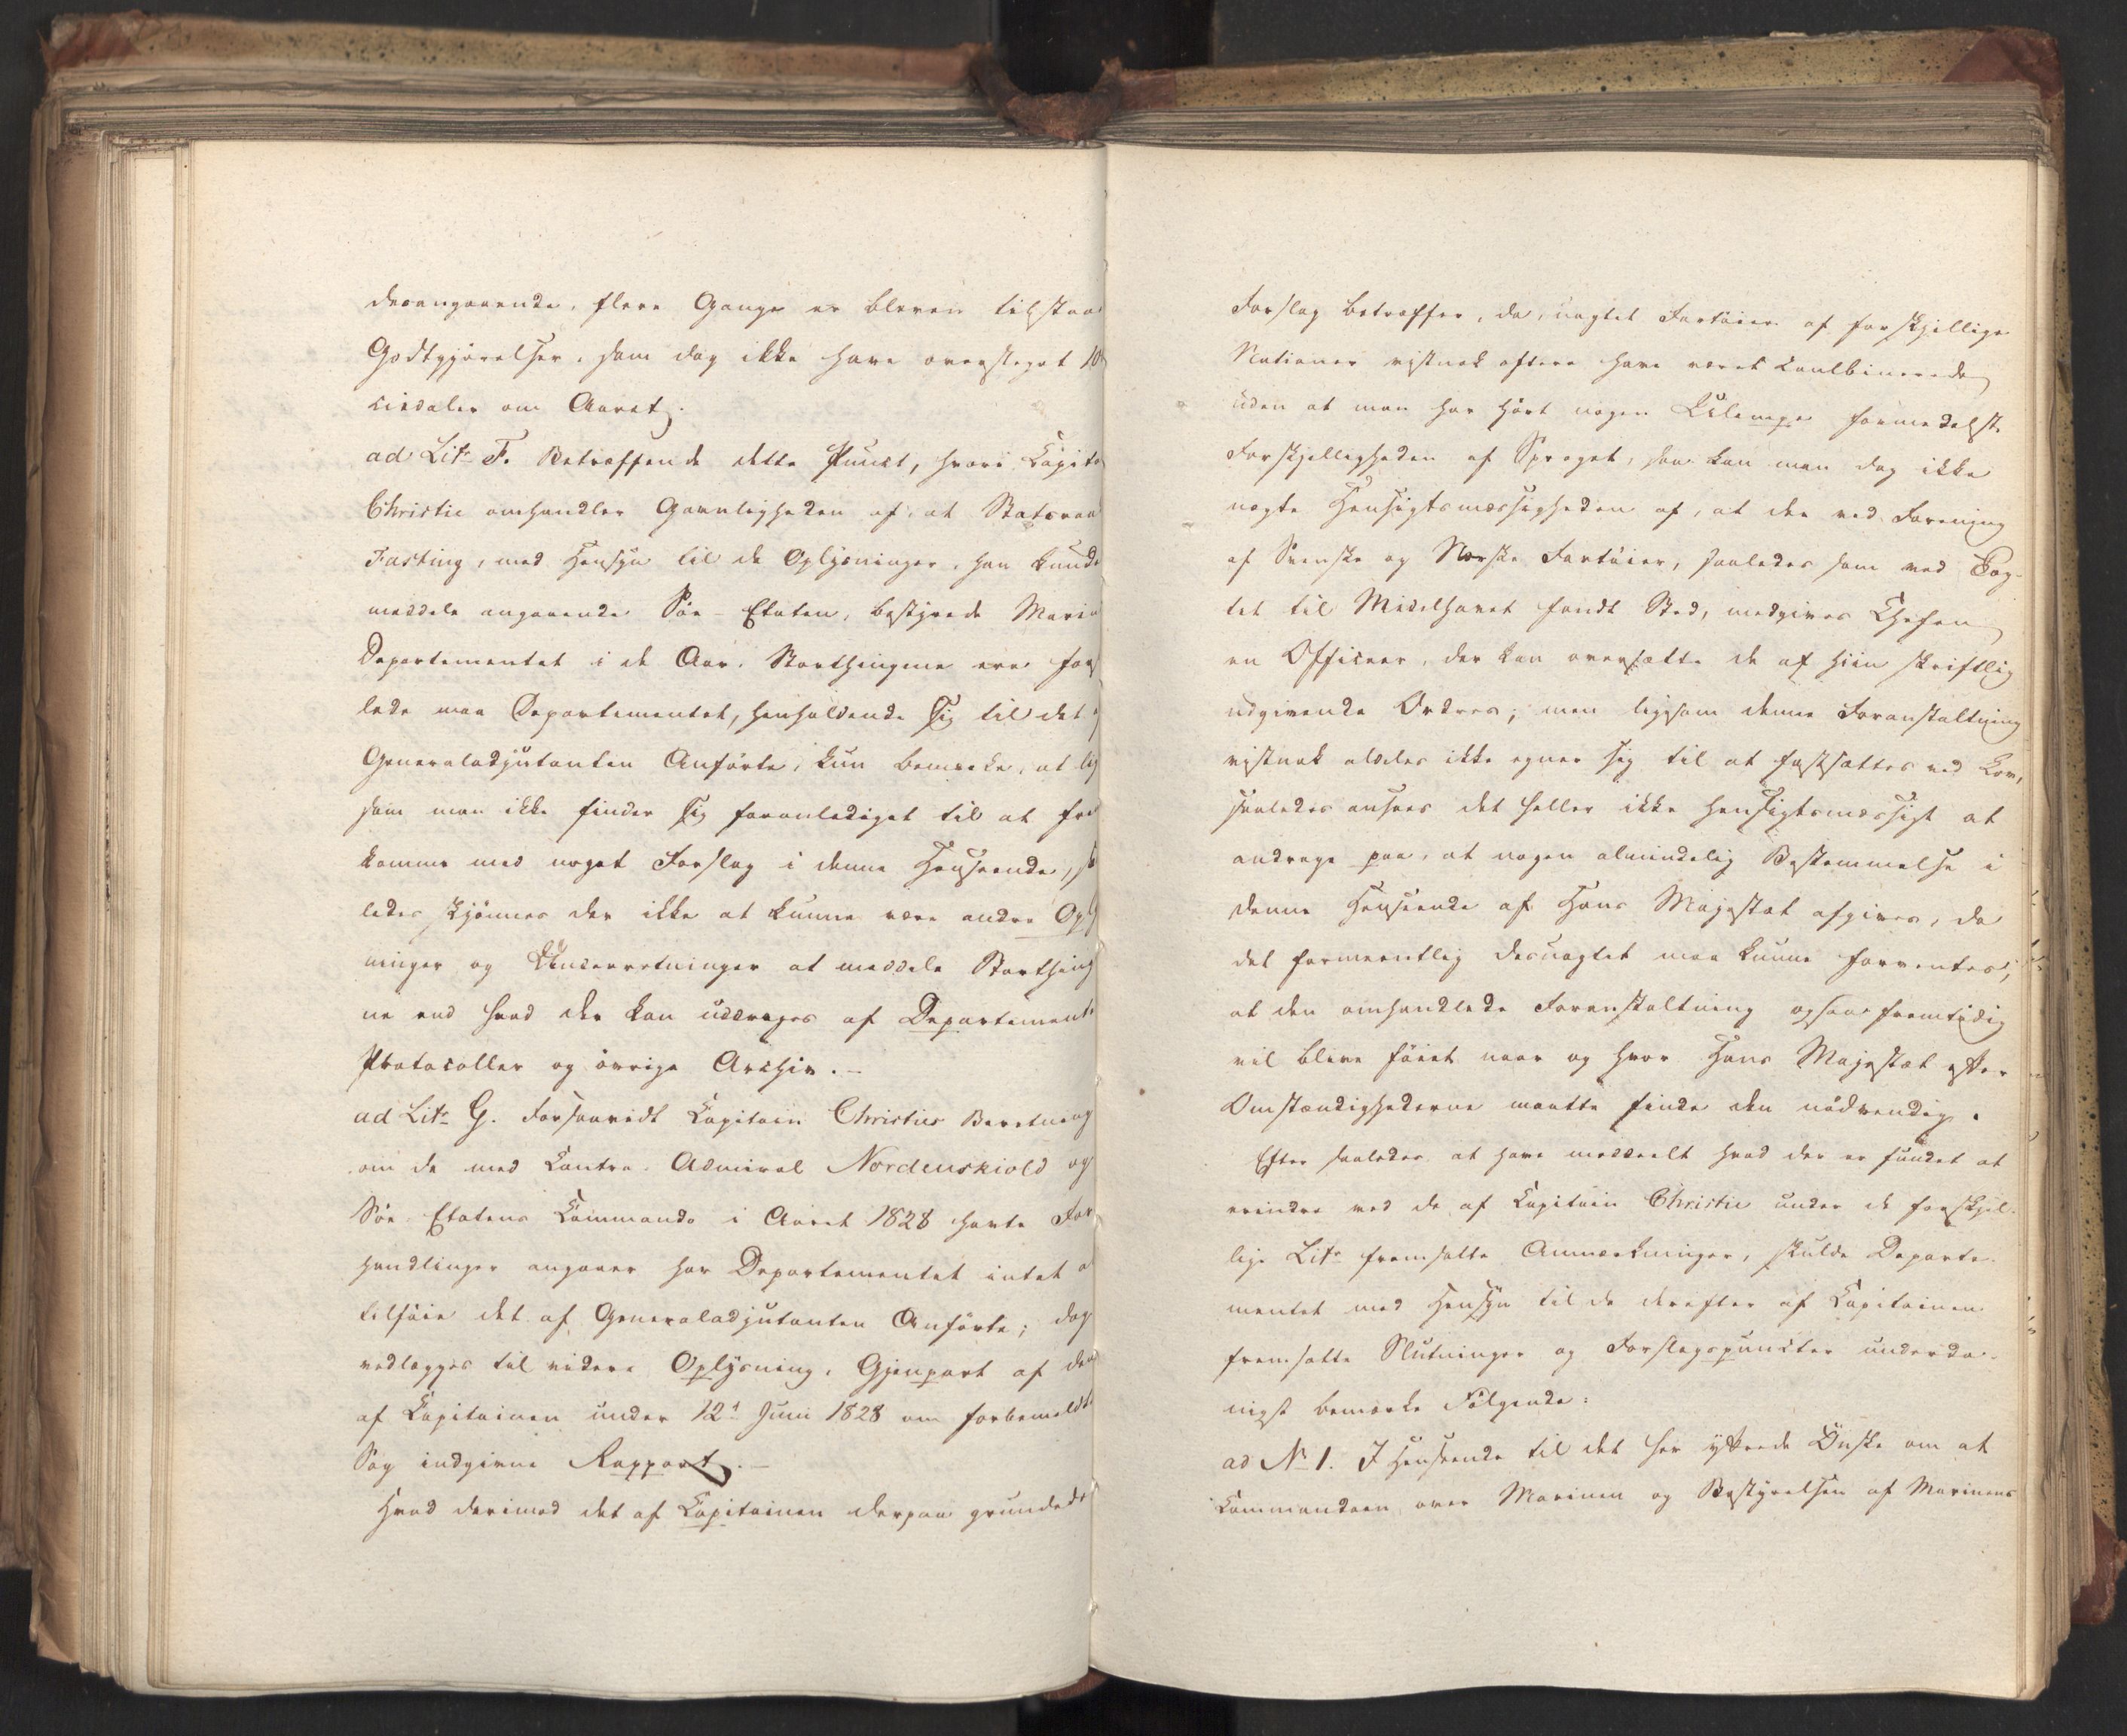 desangaaende, flere Gange er bleven tilstaae
Godtgjörelser, som dog ikke have oversteget 10
sisdaler om Aaret.
ad Litr F. Betræffende dette Punct, hvori Kapit
Christie omhandler Gavnligheden af, at Statsraad
Fasting, med Hensyn til de Oplysninger, han kunde
meddele angaaende Söe-Etaten, bestyrede Marine
Departementet i de Aar, Storthingene ere for
lede maa Departementet, henholdende sig til det
Generaladjutanten Anförte, kun bemærke, at lig
som man ikke finder sig foranlediget til at frem
komme med noget Forslag i denne Henseende, saa
ledes skjönnes der ikke at kunne være andre Oplys
ninger og Underretninger at meddele Storthing
ne end hvad der kan uddrages af Departements
Protocoller og övrige Archiv. –
ad Litr G. Forsaavidt Kapitain Christies Beretning
om de med Contra-Admiral Nordenskiold og
Söe-Etatens Commando i Aaret 1828 havte For
handlinger angaaer har Departementet intet a
tilföie det af Generaladjutanten Anförte; dog
vedlægges til videre Oplysning, Gjenpart af den
af Kapitainen under 12t Juni 1828 om forbemeldte
Sag indgivne Rapport. –
Hvad derimod det af Kapitainen derpaa grundede
Forslag betræffer, da, uagtet Fartöier af forskjellige
Nationer vistnok oftere have været combinerede
uden at man har hört nogen Ulempe formedelst
Forskjelligheden af Sproget, saa kan man dog ikke
nægte Hensigtsmæssigheden af, at der ved Forening
af Svenske og Norske Fartöier, saaledes som ved Tog-
tet til Middelhavet fandt Sted, medgives Chefen
en Officeer, der kan oversætte de af hiin skriftlig
udgivende Ordres; men ligesom denne Foranstaltning
vistnok aldeles ikke egner sig til at fastsættes ved Lov,
saaledes ansees det heller ikke hensigtsmæssigt at
andrage paa, at nogen almindelig Bestemmelse i
denne Henseende af Hans Majestæt afgives, da
det formeentlig desuagtet maa kunne forventes,
at den omhandlede Foranstaltning ogsaa fremtidig
vil blive föiet naar og hvor Hans Majestæt efter
Omstændighederne maatte finde den nödvendig.
Efter saaledes at have meddeelt hvad der er fundet at
erindre ved de af Kapitain Christie under de forskjel-
lige Litr fremsatte Anmærkninger, skulde Departe-
mentet med Hensyn til de derefter af Kapitainen
fremsatte Slutninger og Forslagspuncter underda-
nigst bemærke Fölgende:
ad No 1. I Henseende til det her yttrede Önske om at
Commandoen over Marinen og Bestyrelsen af Marinens